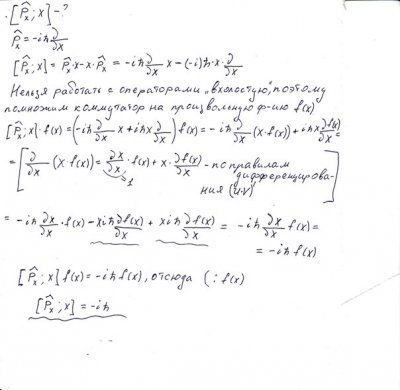 [P̂ₓ; x] - ?
P̂ₓ = -iħ ∂/∂x
[P̂ₓ; x] = P̂ₓ·x - x·P̂ₓ = -iħ ∂/∂x x - (-i)ħ·x·∂/∂x
Нельзя работать с операторами „вхолостую", поэтому
помножим коммутатор на произвольную ф-ию f(x)
[P̂ₓ; x]·f(x) = (-iħ ∂/∂x x + iħx ∂/∂x) f(x) = -iħ ∂/∂x (x·f(x)) + iħx ∂f(x)/∂x =
= [∂/∂x (x·f(x)) = ∂x/∂x · f(x) + x·∂f(x)/∂x - по правилам
1
дифференцирова-
ния (u·v)']
= -iħ ∂x/∂x · f(x) - xiħ ∂f(x)/∂x + xiħ ∂f(x)/∂x = -iħ ∂x/∂x f(x) =
= -iħ f(x)
[P̂ₓ; x] f(x) = -iħ f(x), отсюда (: f(x)
[P̂ₓ; x] = -iħ